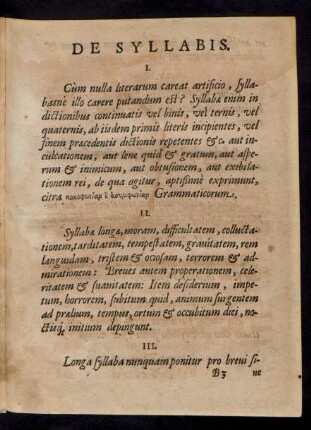 DE SYLLABIS.
I.
Cùm nulla literarum careat artificio, sylla-
basnè illo carere putandum est? Syllabæ enim in
dictionibus continuatis vel binis, vel ternis, vel
quaternis, ab iisdem primis literis incipientes, vel
finem præcedentis dictionis repetentes &c. aut in-
culcationem, aut lene quid & gratum, aut aspe-
rum & inimicum, aut obtusionem, aut exibila-
tionem rei, de qua agitur, aptissimè exprimunt,
citra Grammaticorum.
II.
Syllabæ longæ, moram, difficultatem, colluctа-
tionem, tarditatem, tempestatem, gravitatem, rem
languidam, tristem & otiosam, terrorem & ad-
mirationem: Breves autem properationem, cele-
ritatem & suavitatem: Item desiderium, impe-
tum, horrorem, subitum quid, animum surgentem
ad prælium, tempus, ortum & occubitum diei, no-
ctisq; initium depingunt.
III.
Longa syllaba nunquam ponitur pro brevi si-
B3 ne